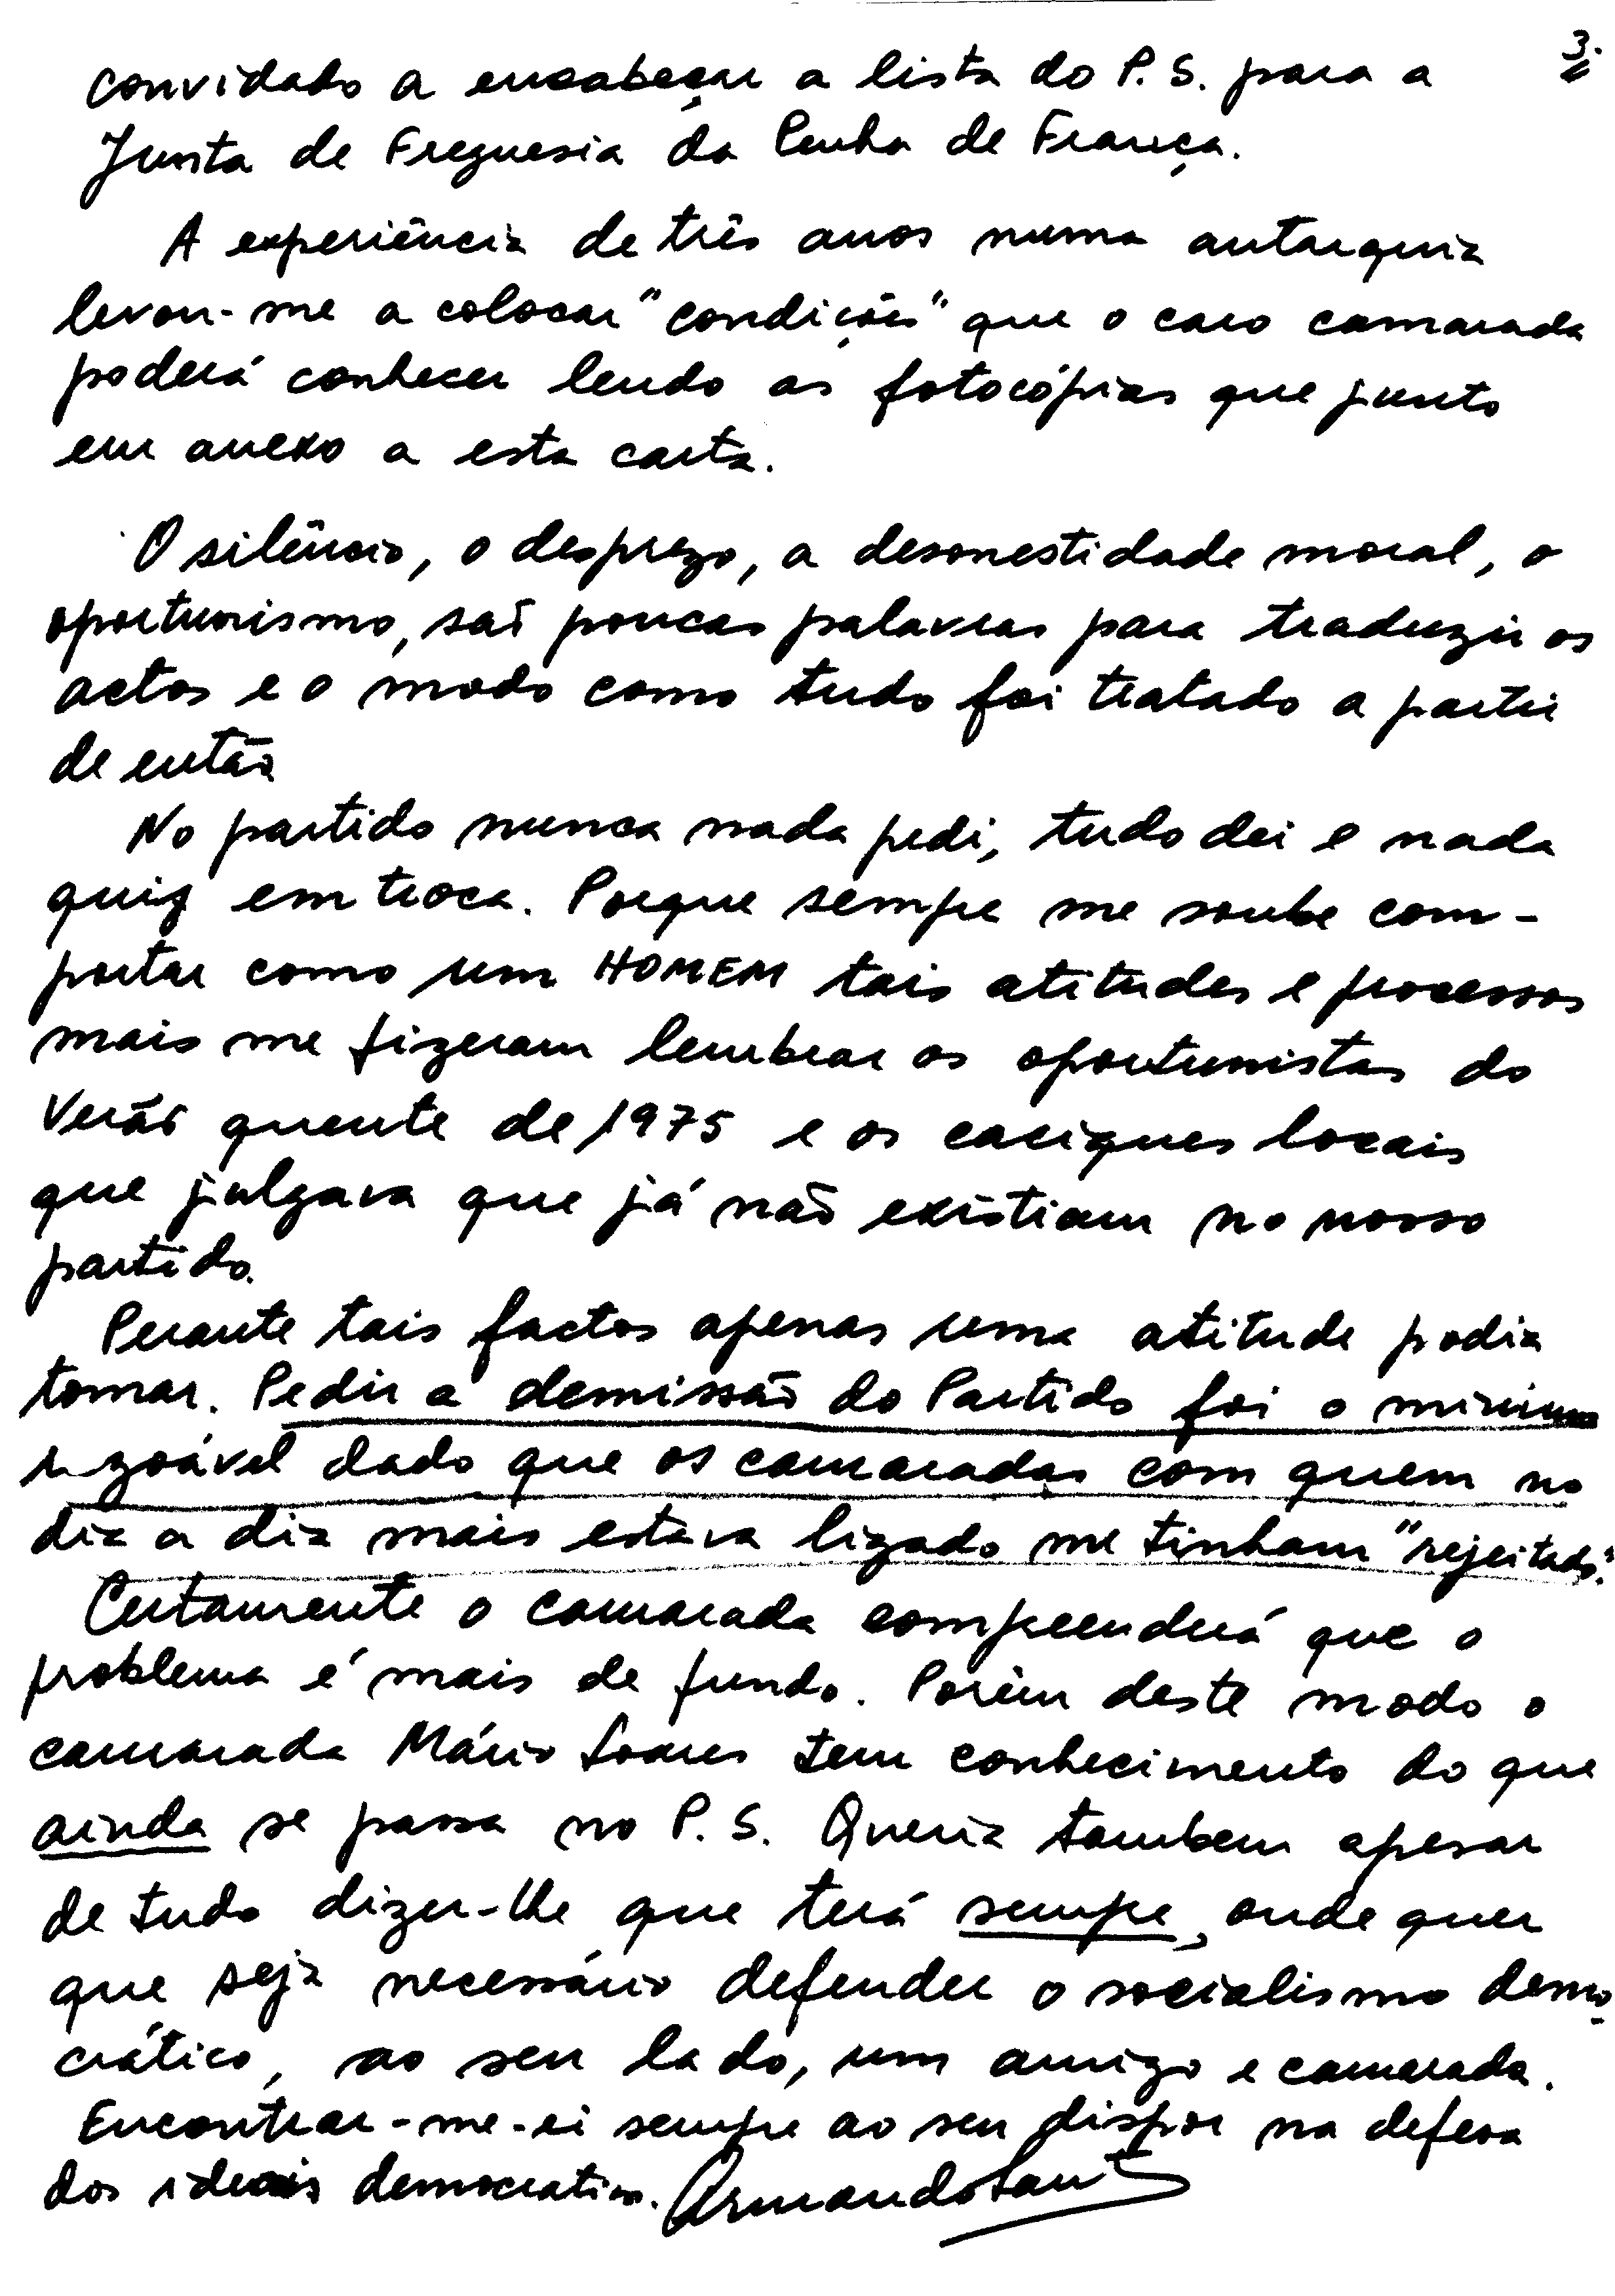 3.
convidado a encabeçar a lista do P. S. para a
Junta de Freguesia da Penha de França.
A experiência de três anos numa autarquia
levou-me a colocar "condições" que o caro camarada
poderá conhecer lendo as fotocópias que junto
em anexo a esta carta.
O silêncio, o desprezo, a desonestidade moral, o
oportunismo, são poucas palavras para traduzir os
actos e o modo como tudo foi tratado a partir
de então
No partido nunca nada pedi, tudo dei e nada
quiz em troca. Porque sempre me soube com-
portar como um HOMEM tais atitudes e processos
mais me fizeram lembrar os oportunistas do
Verão quente de 1975 e os caciques locais
que julgava que já não existiam no nosso
partido.
Perante tais factos apenas uma atitude podia
tomar. Pedir a demissão do Partido foi o mínimo
razoável dado que os camaradas com quem no
dia a dia mais estava ligado me tinham "rejeitado".
Certamente o camarada compreenderá que o
problema é mais de fundo. Porém deste modo o
camarada Mário Soares tem conhecimento do que
ainda se passa no P. S. Queria tambem apesar
de tudo dizer-lhe que terá sempre, onde quer
que seja necessário defender o socialismo demo-
crático, ao seu lado, um amigo e camarada.
Encontrar-me-ei sempre ao seu dispor na defesa
dos ideais democraticos. Armando